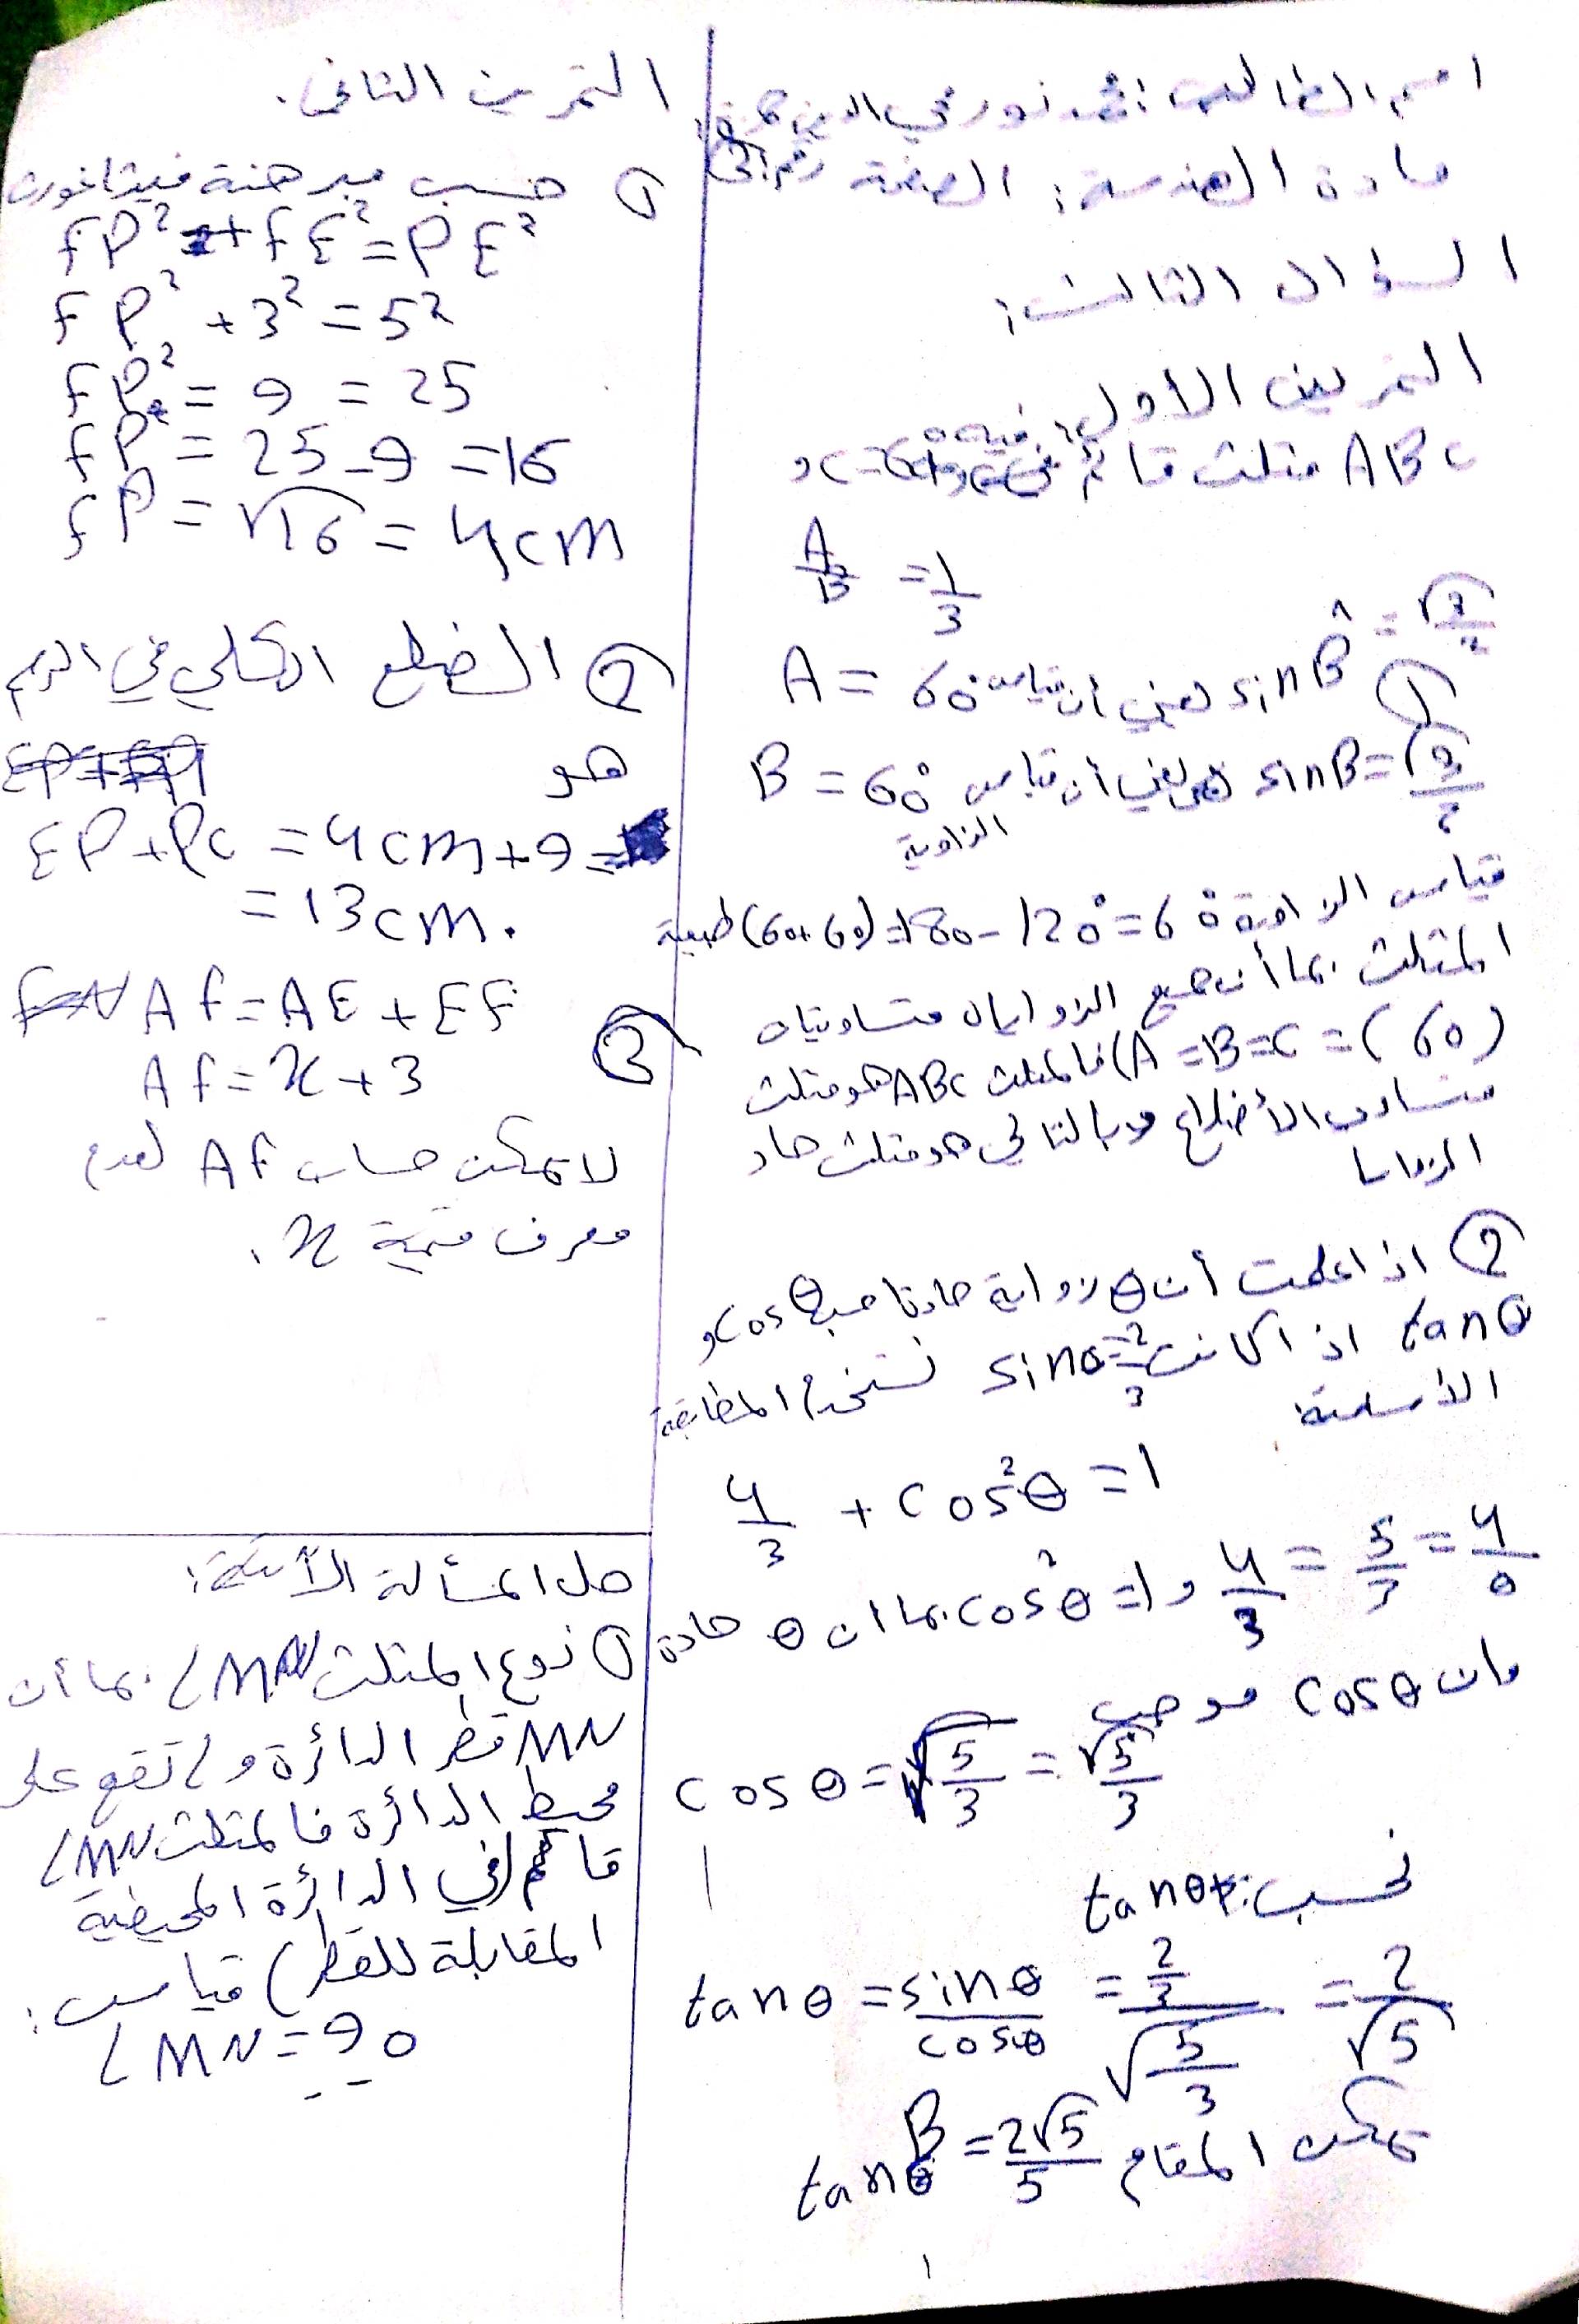 اسم الطالب: محمد نور محي الدين
مادة الهندسة: الصفحة رقم
السؤال الثالث:
التمرين الاول:
ABC مثلث قائم
A/B = 1/3
① sin B̂ = √3/2 يعني أن قياس A = 60°
sin B = √3/2 يعني أن قياس B = 60°
الزاوية
قياس الزاوية 180 - 120° = 60° (60+60) طبيعة
المثلث بما أن جميع الزوايا متساويات
(A = B = C = (60 فالمثلث ABC هو مثلث
متساوي الأضلاع وبالتالي هو مثلث حاد
الزوايا
② اذا علمت أن θ زواية حادة احسب cos θ و
tan θ اذا كانت sin θ = 2/3 نستخدم المطابقة
الأساسية:
4/3 + cos² θ = 1
cos² θ = 1 و 4/3 = 5/3 = 4/9 بما ان θ حادة
وان cos θ موجب
cos θ = √5/3 = √5/3
نحسب: tan θ
tan θ = sin θ / cos θ = 2/3 / √5/3 = 2/√5
المقام tan θ = 2√5/5
التمرين الثاني.
① حسب مبرهنة فيثاغورث
FP² + FE² = PE²
FP² + 3² = 5²
FP² = 9 = 25
FP² = 25 - 9 = 16
FP = √16 = 4cm
② الضلع الكلي في الرسم
هو
EP + PC = 4cm + 9 =
= 13cm.
③ AF = AE + EF
AF = x + 3
لا يمكن حساب AF لعدم
معرف قيمة x.
حل المسألة الآتية:
① نوع المثلث LMN بما أن
MN قطر الدائرة و L تقع على
محيط الدائرة فالمثلث LMN
قائم (في الدائرة المحيطية
المقابلة للقطر) قياس:
LMN = 90